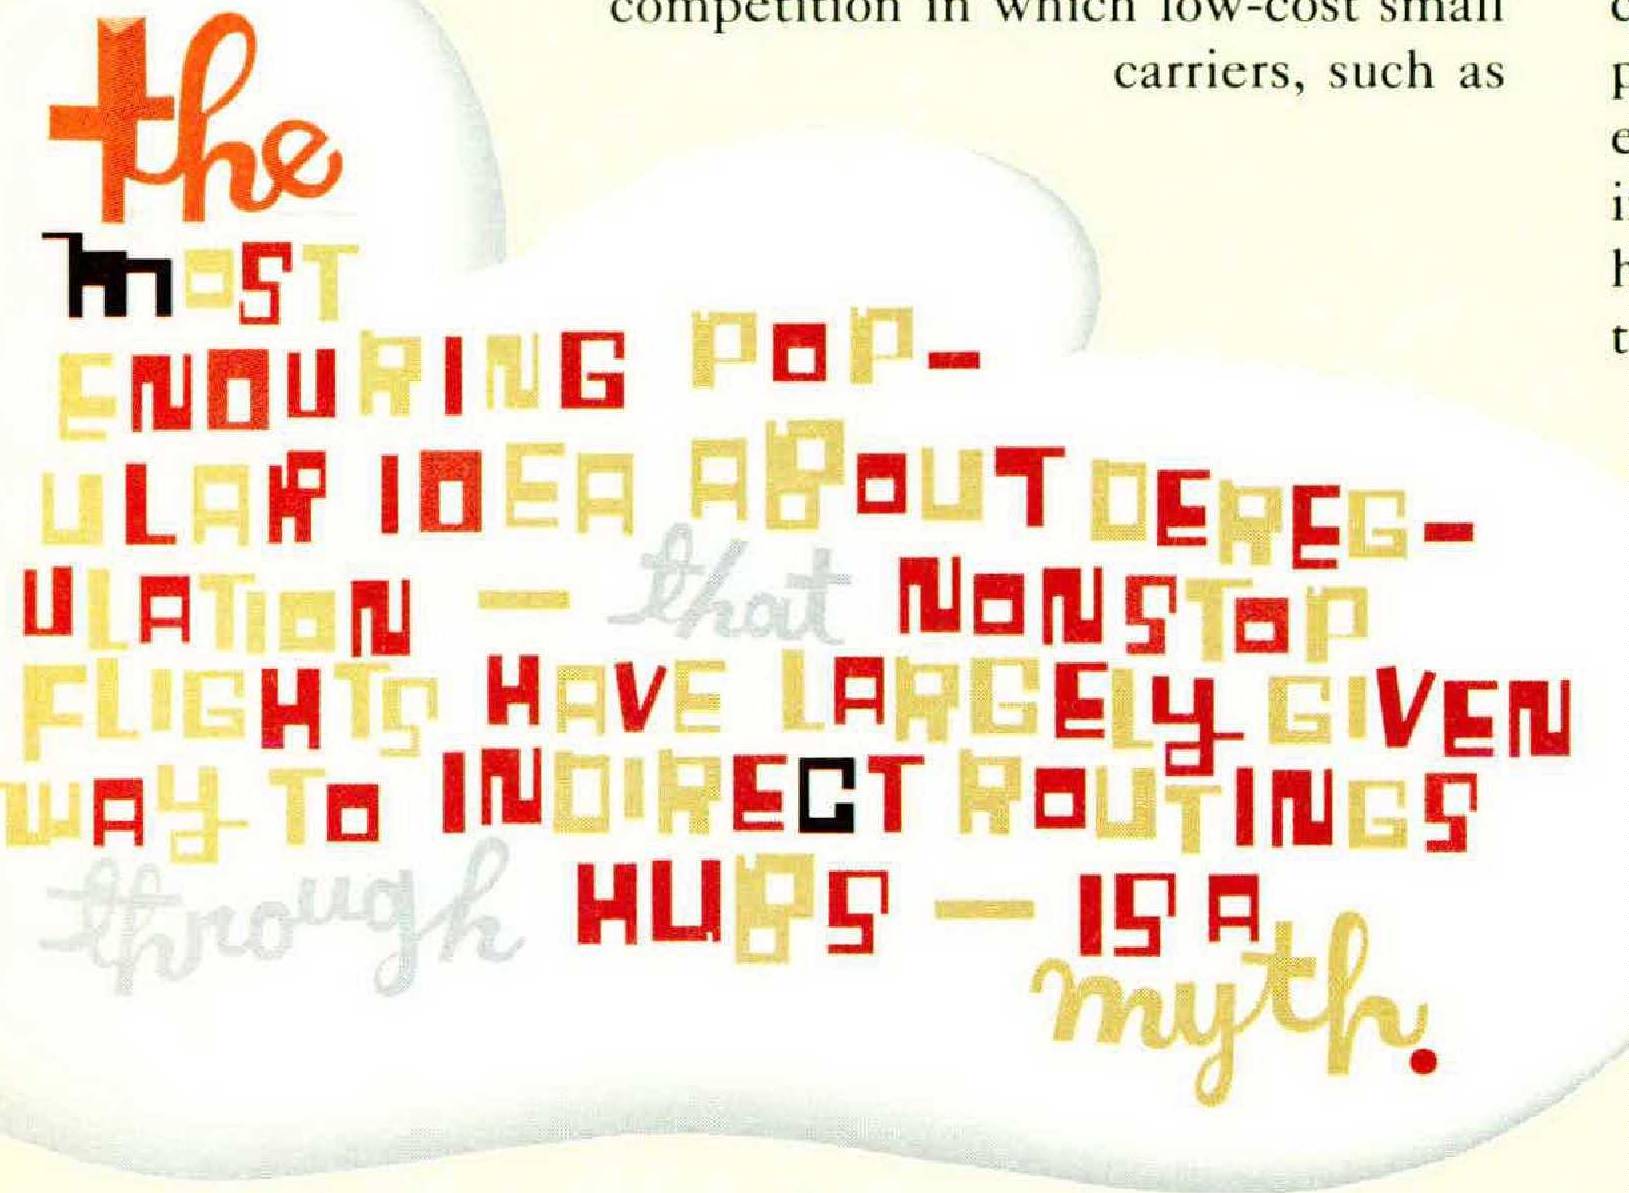 competition in which low-cost small
carriers, such as
the
most
ENDURING POP-
ULAR IDEA ABOUT DEREG-
ULATION — that NONSTOP
FLIGHTS HAVE LARGELY GIVEN
WAY TO INDIRECT ROUTINGS
through HUBS — IS A
myth.